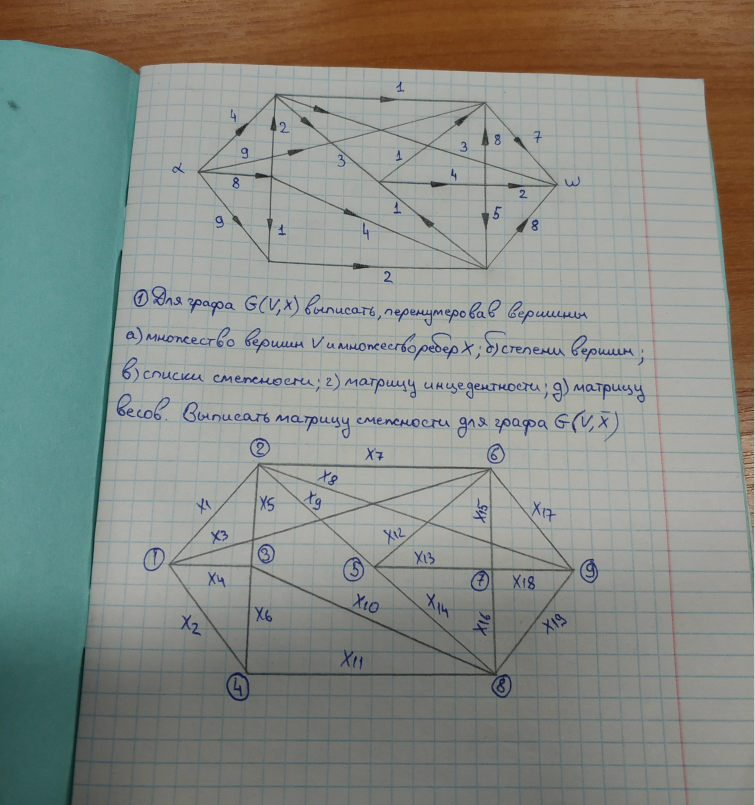 1
4
2
7
9
3
1
3
8
α
8
4
2
ω
9
1
1
5
8
4
2
① Для графа G(V,X) выписать, перенумеровав вершины
а) множество вершин V и множество ребер X; б) степени вершин;
в) списки смежности; г) матрицу инцедентности; д) матрицу
весов. Выписать матрицу смежности для графа G(V,X̄)
② X7 ⑥
X8
X1 X5 X9 X15 X17
X3 X12
① ③ ⑤ X13 ⑦ X18 ⑨
X4
X10 X14
X2 X6 X16 X19
X11
④ ⑧